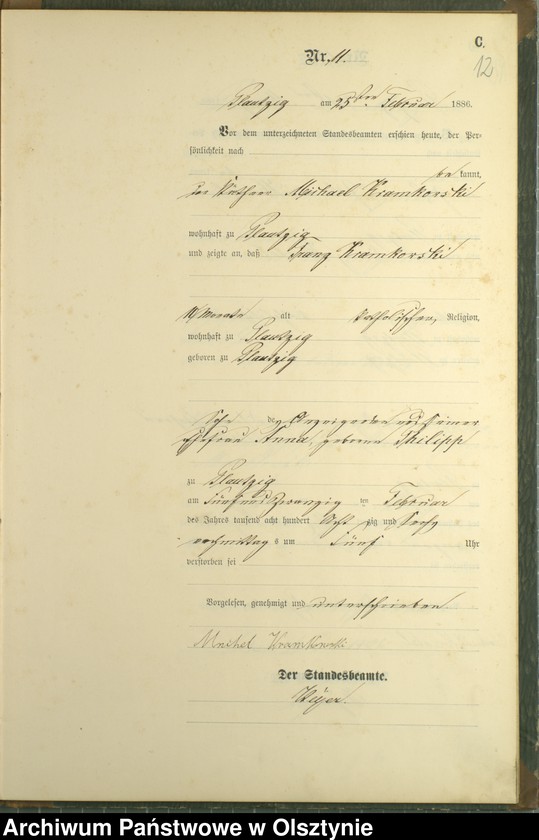 C.
12
Nr. 11.
Plautzig am 25ten Februar 1886.
Vor dem unterzeichneten Standesbeamten erschien heute, der Per-
sönlichkeit nach
be kannt,
der Michael Kramkorski
wohnhaft zu Plautzig
und zeigte an, daß Franz Kramkorski
Monate alt katholischer, Religion,
wohnhaft zu Plautzig
geboren zu Plautzig
Sohn des Anzeigenden und seiner
Ehefrau Anna, geborene Philipp
zu Plautzig
am fünf und zwanzig ten Februar
des Jahres tausend acht hundert acht zig und sechs
nachmittag s um fünf Uhr
verstorben sei
Vorgelesen, genehmigt und unterschrieben.
Michel Kramkowski
Der Standesbeamte.
Archiwum Państwowe w Olsztynie